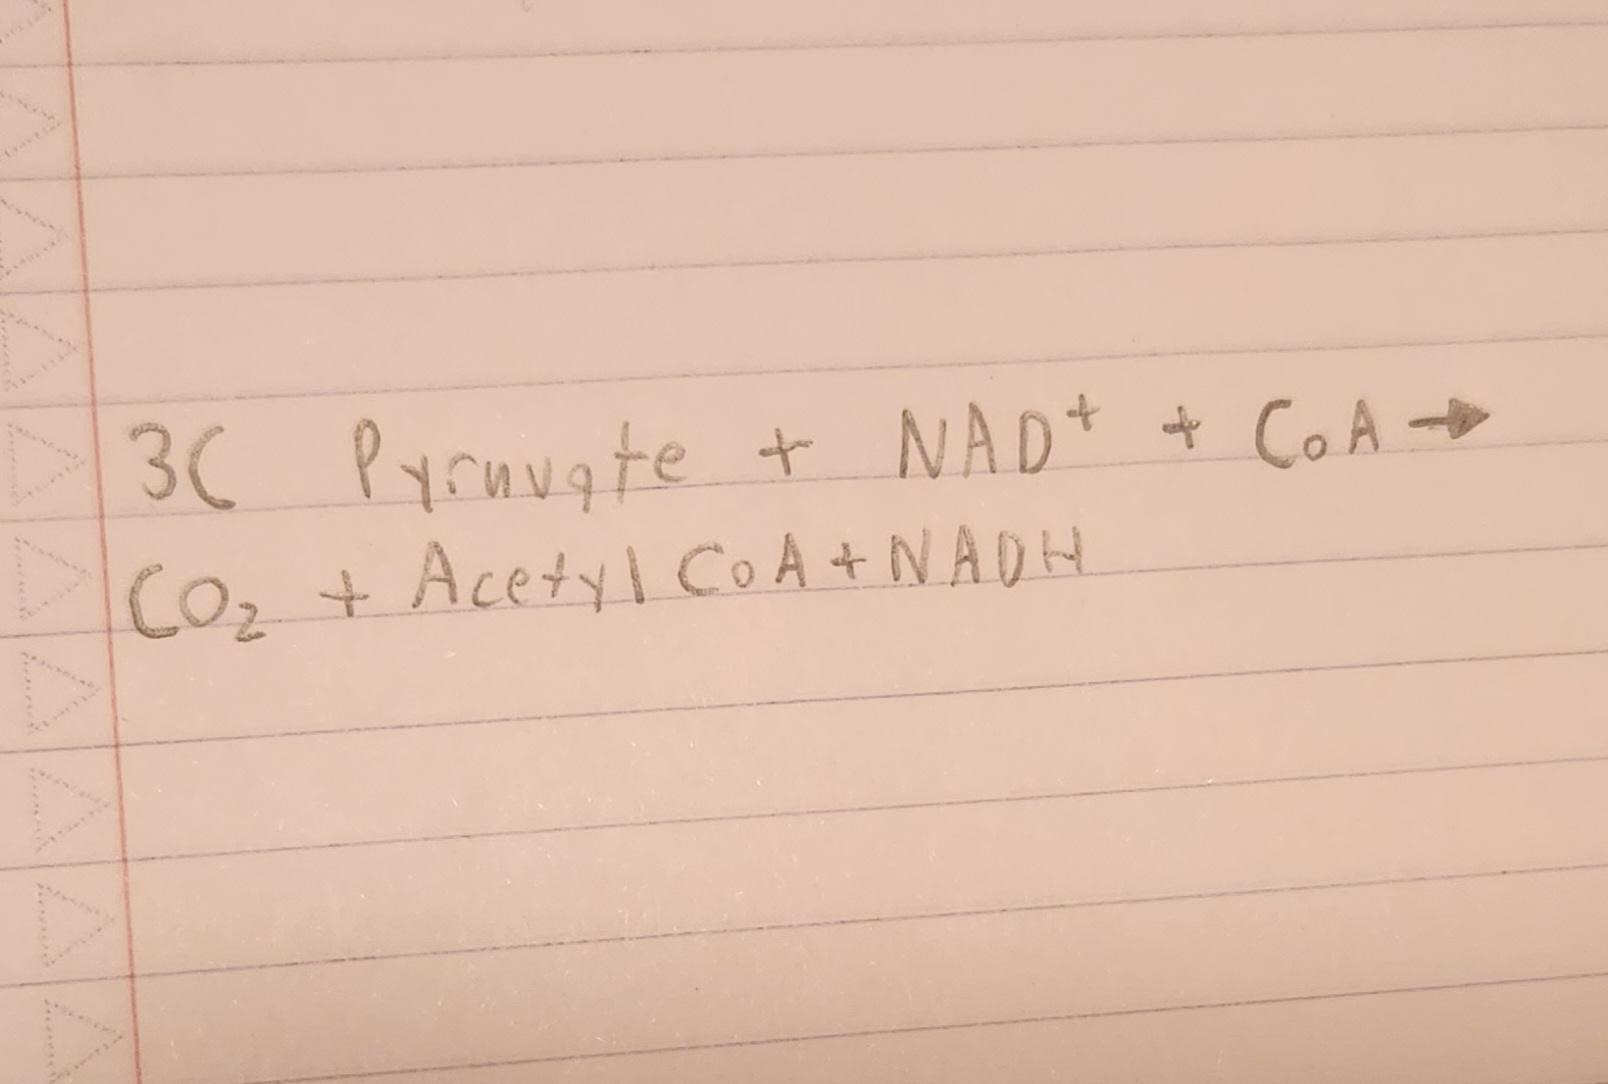 3C Pyruvate + NAD⁺ + CoA →
CO₂ + Acetyl CoA + NADH